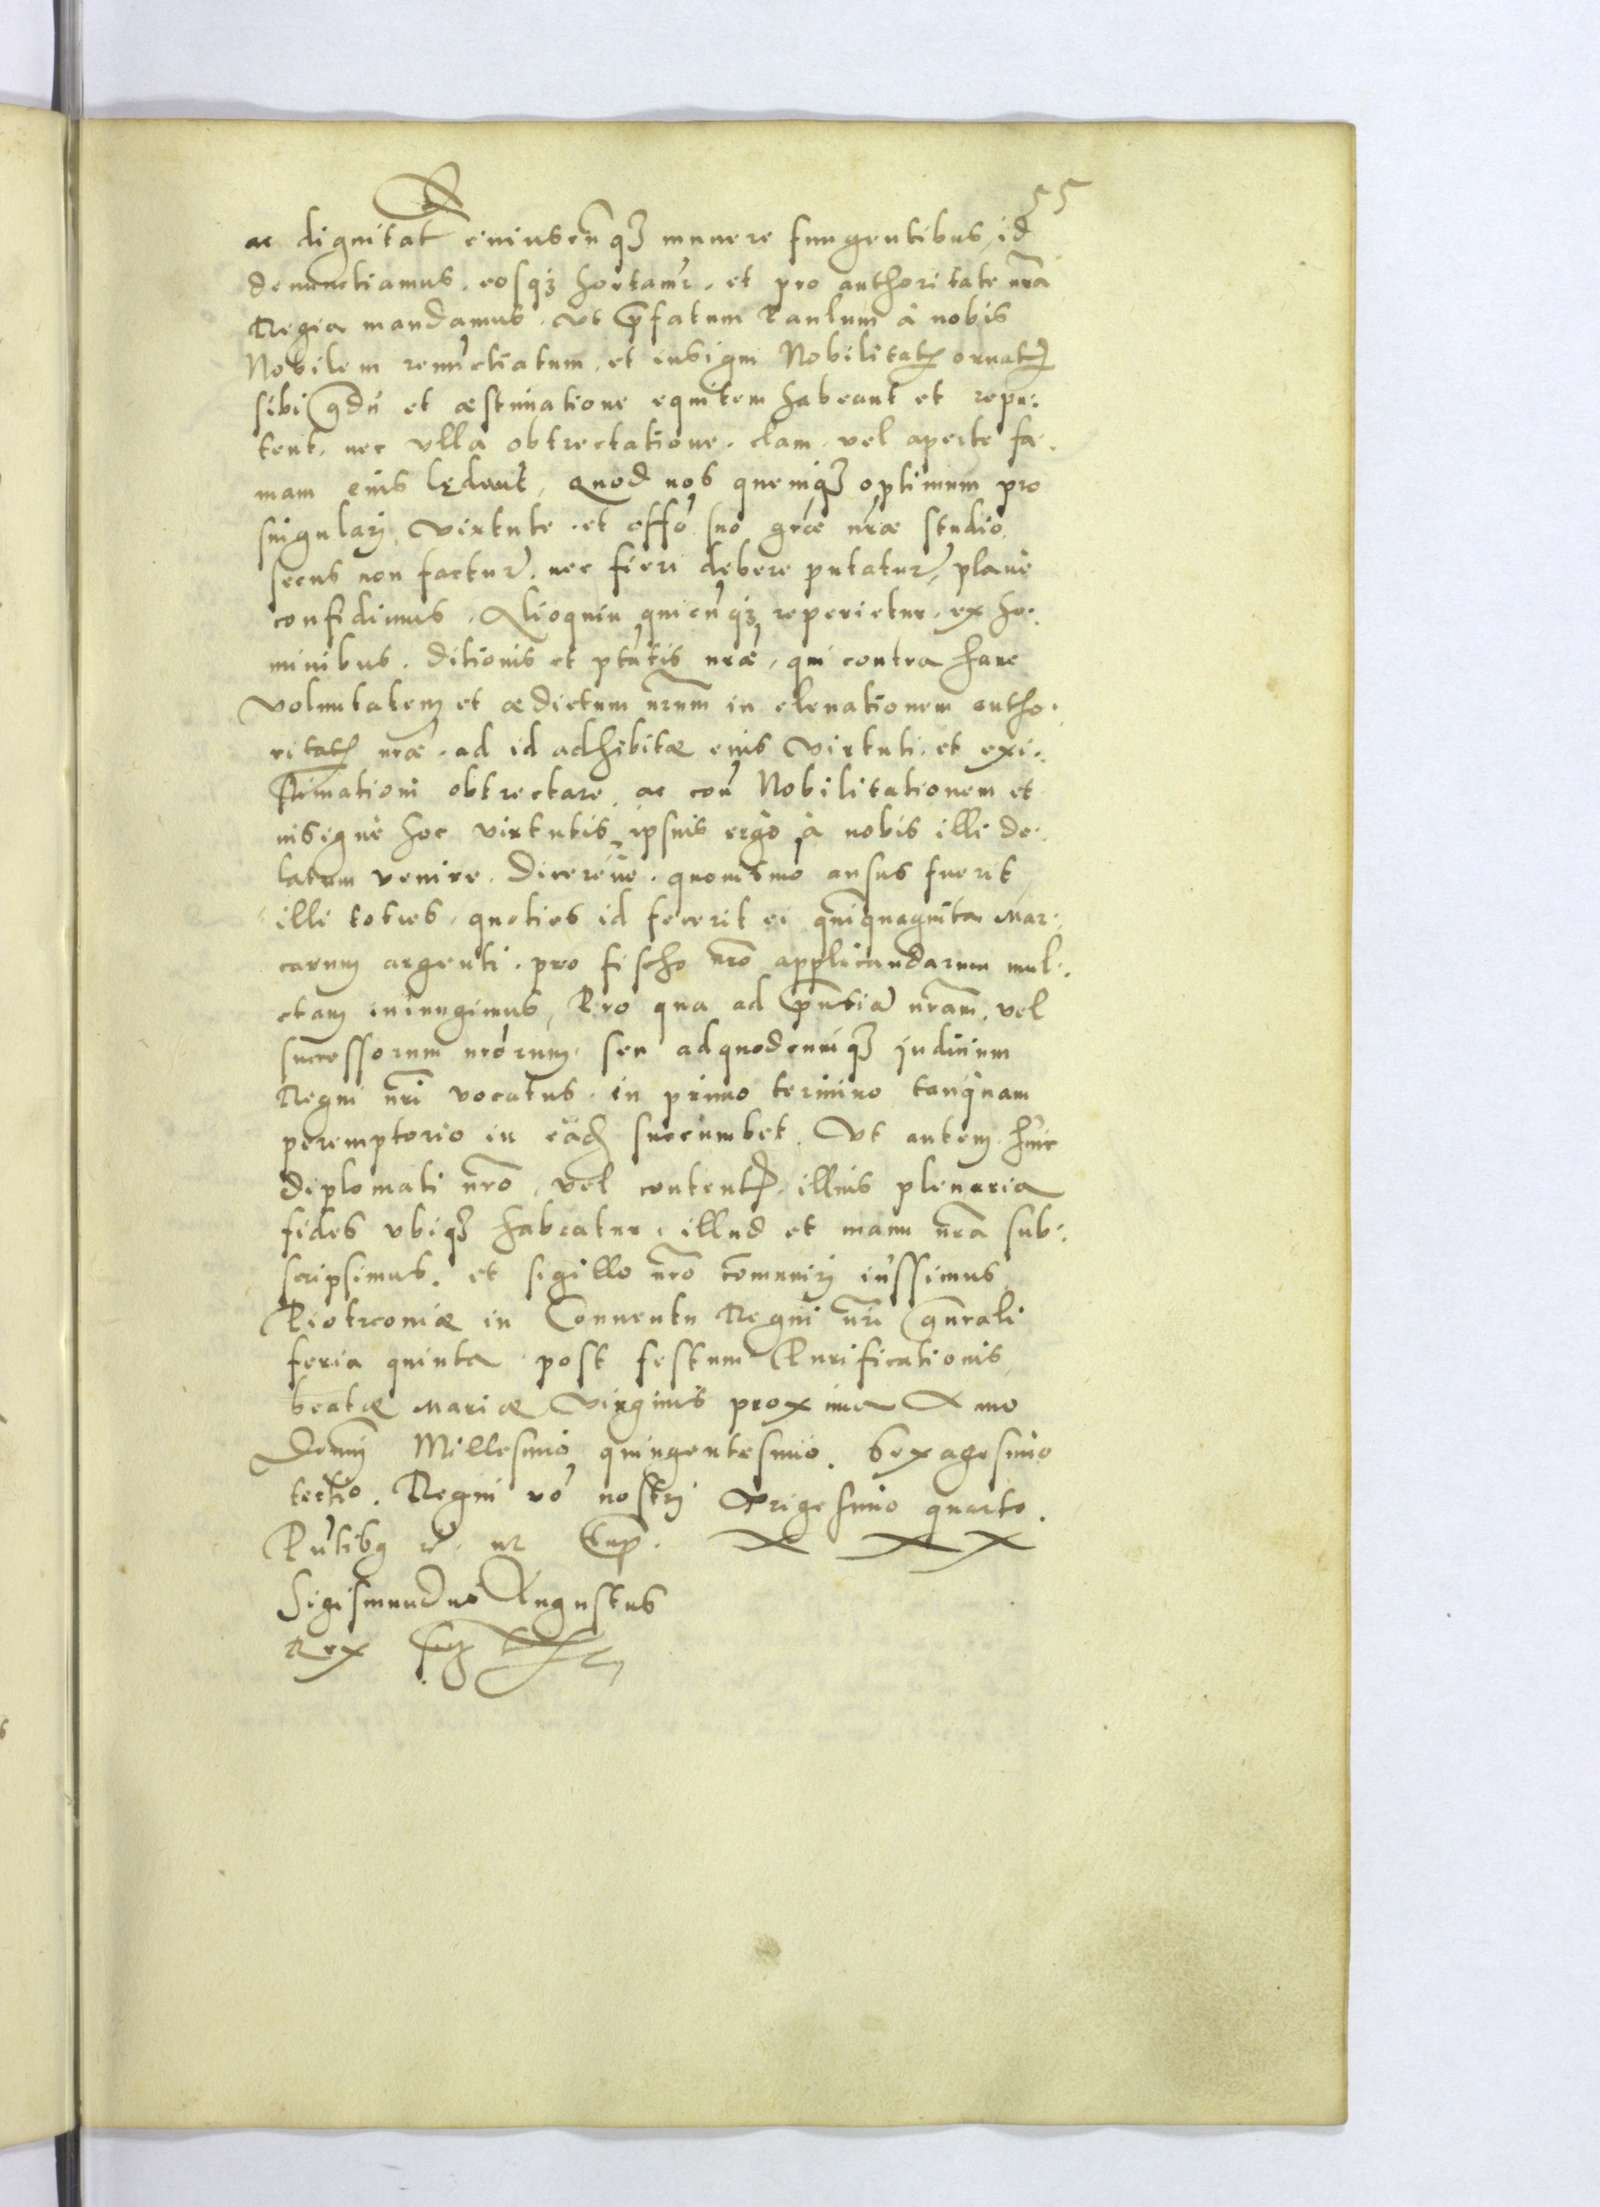 55
ac dignitat̄ cuiuscūq₃ munere fungentibus, id
denunctiamus. eosq₃ hortam̄r. et pro authoritate nr̄a
Regia mandamus. vt p̄fatum Paulum à nobis
Nobilem renūctiatum, et insigni Nobilitat͡ ornat͡
sibi q̄dū et æstimatione equitem habeant et repu:
tent, nec vlla obtrectatione. clam. vel aperte fa:
mam eius lędant, Quod nos quemq₃ optimum pro
singularj virtute. et offō suo gr̄æ nr̄æ studio
secus non factur̄. nec fieri debere putatur, planè
confidimus. Alioquin quicūq₃ reperietur. ex ho:
minibus. ditionis et ptātis nr̄æ, qui contra hanc
voluntatem et ædictum nr̄um in eleuationem autho:
ritat͡ nr̄æ. ad id adhibitæ eius virtuti. et exi:
stimationi obtrectare, ac coū Nobilitationem et
insigne hoc virtutis ipsius ergò à nobis illi de:
latum venire. dicereue. quouismo ansus fuerit
illi toties. quoties id fecerit ei quinquaginta Mar:
carum argenti. pro fischo nr̄o applicandarum mul:
ctam iniungimus, Pro qua ad p̄ntiā nr̄am, vel
successorum nr̄orum. seu adquodcunq₃ judicium
Regni nr̄i vocatus. in primo termino tanquam
peremptorio in eād͡ succumbet. Vt autem huic
diplomati nr̄o, vel content͡ illius plenaria
fides vbiq₃ habeatur, illud et manu nr̄a sub:
scripsimus. et sigillo nr̄o com̄unirj iussimus
Piotrcouiæ in Conuentu Regni nr̄i gn̄rali
feria quinta post festum Purificationis
beatæ Mariæ Virginis proxima Anno
Domnj Millesimo quingentesimo. Sexagesimo
tertio. Regni vō nostrj Trigesimo quarto.
Pn̄tibq
Sigismundus Augustus
Rex